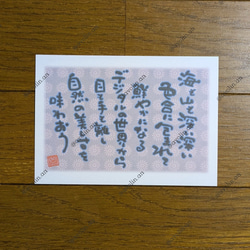 海と山と深い深い
色合に包まれて
鮮やかになる
デジタルの世界から
目と手を離し
自然の美しさを
味わおう